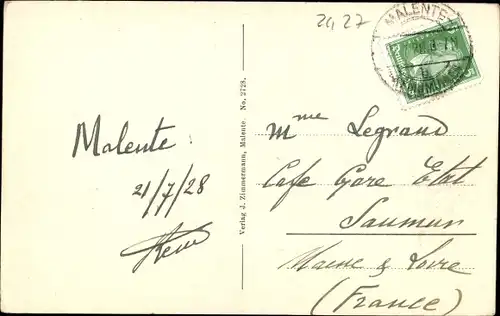 24 27
MALENTE
Malente
21/7/28
Verlag J. Zimmermann, Malente. No. 2728.
Mme Legrand
Cafe Gare Etat
Saumur
Maine & Loire
(France)